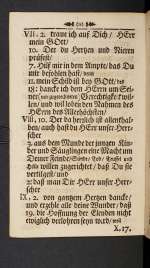 VII. 2. traue ich auf Dich/ HErr
mein GOtt/
10. Der du Hertzen und Nieren
prüfest/
7. Hilf mir in dem Ampte/ das Du
mir befohlen hast/
11. mein Schild ist bey GOtt/
18. dancke ich dem HErrn um Seiner
Gerechtigkeit willen/
und will loben den Nahmen des
HErrn des Allerhöchsten/
VIII. 10. Der du herrlich ist allenthalben/
auch hast du HErr unser Herrscher
3. aus dem Munde der jungen Kinder
und Säuglinge eine Macht um
Deiner Feinde/
willen zugerichtet/ daß Du sie
vertilgest/ und
2. daß man Dir HErr unser Herrscher
IX. 2. von gantzem Hertzen dancke/
und erzehle alle deine Wunder/ daß
19. die Hoffnung der Elenden nicht
ewiglich verlohren seyn wird/
X. 17.